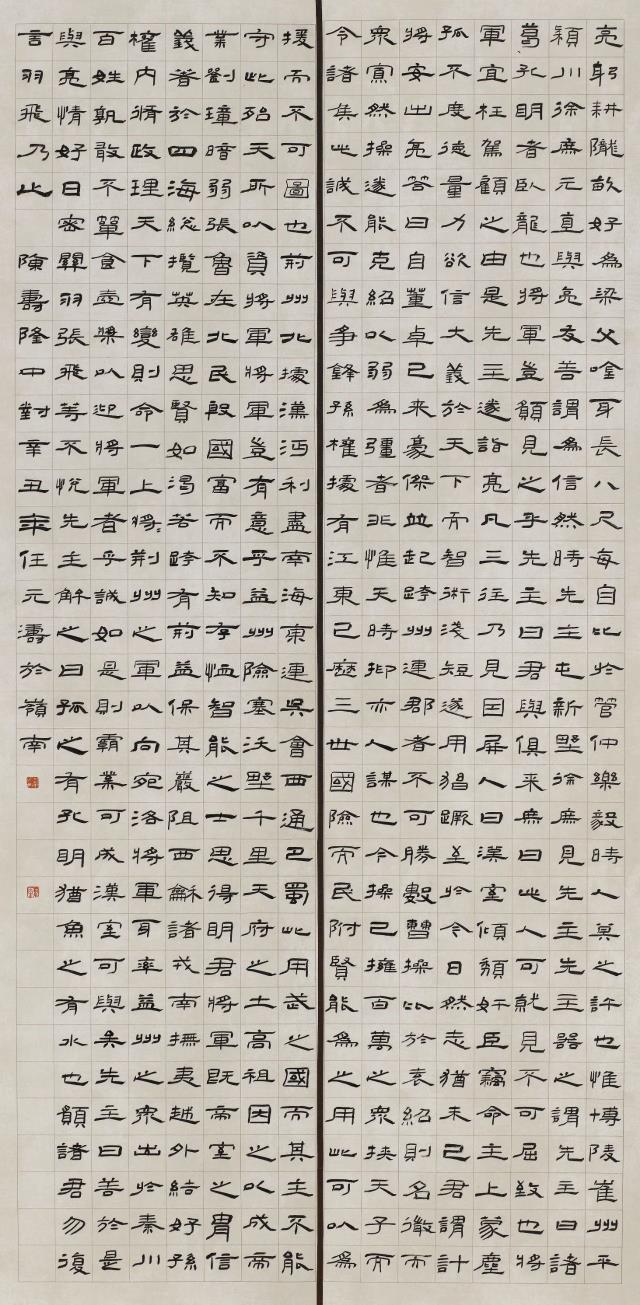 亮躬耕隴畝好為梁父唫身長八尺每自比於管仲樂毅時人莫之許也惟博陵崔州平
潁川徐庶元直與亮友善謂為信然時先主屯新野徐庶見先主先主器之謂先主曰諸
葛孔明者臥龍也將軍豈願見之乎先主曰君與俱來庶曰此人可就見不可屈致也將
軍宜枉駕顧之由是先主遂詣亮凡三往乃見因屏人曰漢室傾頹奸臣竊命主上蒙塵
孤不度德量力欲信大義於天下而智術淺短遂用猖蹶至於今日然志猶未已君謂計
將安出亮答曰自董卓已來豪傑並起跨州連郡者不可勝數曹操比於袁紹則名微而
眾寡然操遂能克紹以弱為彊者非惟天時抑亦人謀也今操已擁百萬之眾挾天子而
令諸侯此誠不可與爭鋒孫權據有江東已歷三世國險而民附賢能為之用此可以為
援而不可圖也荊州北據漢沔利盡南海東連吳會西通巴蜀此用武之國而其主不能
守此殆天所以資將軍將軍豈有意乎益州險塞沃野千里天府之土高祖因之以成帝
業劉璋暗弱張魯在北民殷國富而不知存恤智能之士思得明君將軍既帝室之胄信
義著於四海總攬英雄思賢如渴若跨有荊益保其巖阻西龢諸戎南撫夷越外結好孫
權內脩政理天下有變則命一上將〻荊州之軍以向宛洛將軍身率益州之眾出於秦川
百姓孰敢不簞食壺漿以迎將軍者乎誠如是則霸業可成漢室可興矣先主曰善於是
與亮情好日密關羽張飛等不悅先主解之曰孤之有孔明猶魚之有水也願諸君勿復
言羽飛乃止 陳壽隆中對辛丑年任元濤於嶺南